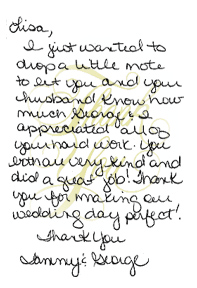 Lisa,
I just wanted to
drop a little note
to let you and your
husband know how
much George & I
appreciated all of
your hard work. You
both are very kind and
did a great job! Thank
you for making our
wedding day perfect!
Thank You
Tammy & George
Thank
You